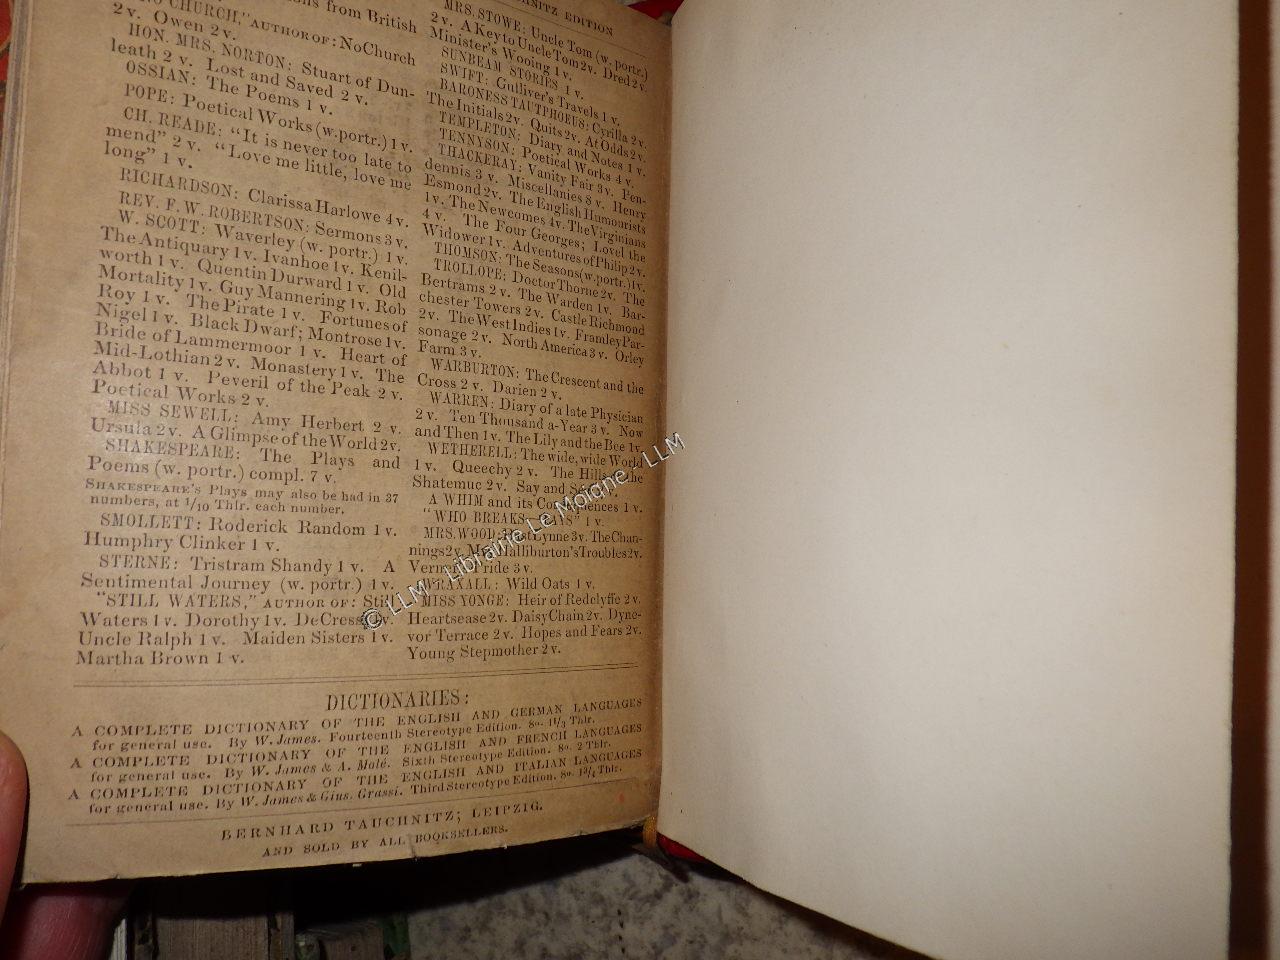 from British
CHURCH," AUTHOR OF: No Church
2 v. Owen 2 v.
HON. MRS. NORTON: Stuart of Dun-
leath 2 v. Lost and Saved 2 v.
OSSIAN: The Poems 1 v.
POPE: Poetical Works (w. portr.) 1 v.
CH. READE: "It is never too late to
mend" 2 v. "Love me little, love me
long" 1 v.
RICHARDSON: Clarissa Harlowe 4 v.
REV. F. W. ROBERTSON: Sermons 3 v.
W. SCOTT: Waverley (w. portr.) 1 v.
The Antiquary 1 v. Ivanhoe 1 v. Kenil-
worth 1 v. Quentin Durward 1 v. Old
Mortality 1 v. Guy Mannering 1 v. Rob
Roy 1 v. The Pirate 1 v. Fortunes of
Nigel 1 v. Black Dwarf; Montrose 1 v.
Bride of Lammermoor 1 v. Heart of
Mid-Lothian 2 v. Monastery 1 v. The
Abbot 1 v. Peveril of the Peak 2 v.
Poetical Works 2 v.
MISS SEWELL: Amy Herbert 2 v.
Ursula 2 v. A Glimpse of the World 2 v.
SHAKESPEARE: The Plays and
Poems (w. portr.) compl. 7 v.
SHAKESPEARE'S Plays may also be had in 37
numbers, at 1/10 Thlr. each number.
SMOLLETT: Roderick Random 1 v.
Humphry Clinker 1 v.
STERNE: Tristram Shandy 1 v. A
Sentimental Journey (w. portr.) 1 v.
"STILL WATERS," AUTHOR OF: Still
Waters 1 v. Dorothy 1 v. De Cressy v.
Uncle Ralph 1 v. Maiden Sisters 1 v.
Martha Brown 1 v.
EDITION
MRS. STOWE: Uncle Tom (w. portr.)
2 v. A Key to Uncle Tom 2 v. Dred 2 v.
Minister's Wooing 1 v.
SUNBEAM STORIES 1 v.
SWIFT: Gulliver's Travels 1 v.
BARONESS TAUTPHOEUS: Cyrilla 2 v.
The Initials 2 v. Quits 2 v. At Odds 2 v.
TEMPLETON: Diary and Notes 1 v.
TENNYSON: Poetical Works 4 v.
THACKERAY: Vanity Fair 3 v. Pen-
dennis 3 v. Miscellanies 8 v. Henry
Esmond 2 v. The English Humourists
1 v. The Newcomes 4 v. The Virginians
4 v. The Four Georges; Lovel the
Widower 1 v. Adventures of Philip 2 v.
THOMSON: The Seasons (w. portr.) 1 v.
TROLLOPE: Doctor Thorne 2 v. The
Bertrams 2 v. The Warden 1 v. Bar-
chester Towers 2 v. Castle Richmond
2 v. The West Indies 1 v. Framley Par-
sonage 2 v. North America 3 v. Orley
Farm 3 v.
WARBURTON: The Crescent and the
Cross 2 v. Darien 2 v.
WARREN: Diary of a late Physician
2 v. Ten Thousand a-Year 3 v. Now
and Then 1 v. The Lily and the Bee 1 v.
WETHERELL: The wide, wide World
1 v. Queechy 2 v. The Hills of the
Shatemuc 2 v. Say and v.
A WHIM and its Consequences 1 v.
"WHO BREAKS—PAYS" 1 v.
MRS. WOOD: East Lynne 3 v. The Chan-
nings 2 v. Mrs. Halliburton's Troubles 2 v.
Verner's Pride 3 v.
WRAXALL: Wild Oats 1 v.
MISS YONGE: Heir of Redclyffe 2 v.
Heartsease 2 v. Daisy Chain 2 v. Dyne-
vor Terrace 2 v. Hopes and Fears 2 v.
Young Stepmother 2 v.
DICTIONARIES:
A COMPLETE DICTIONARY OF THE ENGLISH AND GERMAN LANGUAGES
for general use. By W. James. Fourteenth Stereotype Edition. 8o. 1 1/3 Thlr.
A COMPLETE DICTIONARY OF THE ENGLISH AND FRENCH LANGUAGES
for general use. By W. James & A. Molé. Sixth Stereotype Edition. 8o. 2 Thlr.
A COMPLETE DICTIONARY OF THE ENGLISH AND ITALIAN LANGUAGES
for general use. By W. James & Gius. Grassi. Third Stereotype Edition. 8o. 1 3/4 Thlr.
BERNHARD TAUCHNITZ; LEIPZIG.
AND SOLD BY ALL BOOKSELLERS.
© LLM - Librairie Le Moigne - LLM